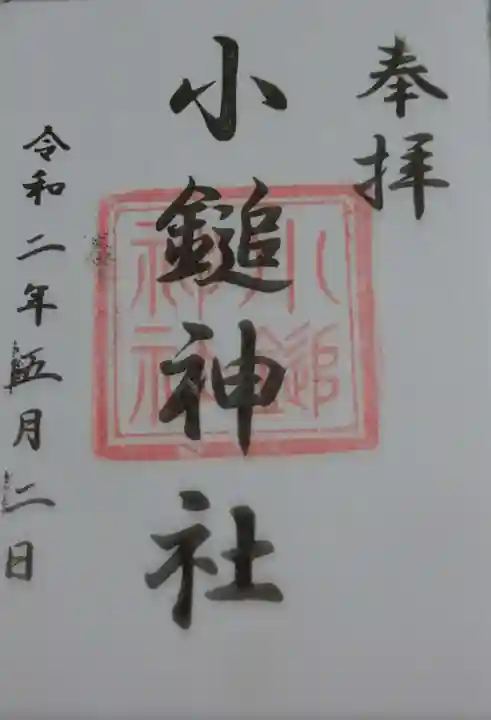 奉拝
小鎚神社
小鎚
神社
令和二年五月二日